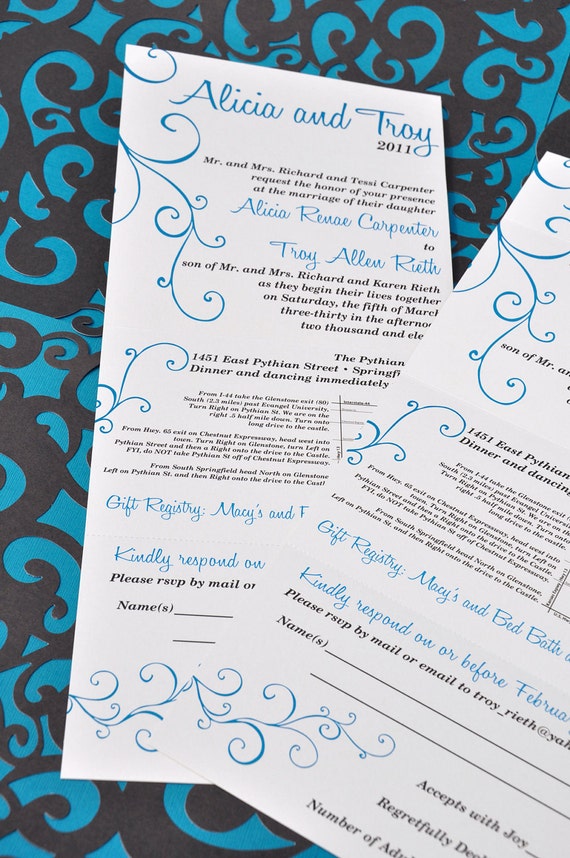 Alicia and Troy
2011
Mr. and Mrs. Richard and Tessi Carpenter
request the honor of your presence
at the marriage of their daughter
Alicia Renae Carpenter
to
Troy Allen Rieth
son of Mr. and Mrs. Richard and Karen Rieth
as they begin their lives together
on Saturday, the fifth of March
three-thirty in the afternoon
two thousand and
The Pythian
1451 East Pythian Street •
Dinner and dancing immediately
From I-44 take the Glenstone exit (80)
South (2.3 miles) past Evangel University.
Turn Right on Pythian St. We are on the
right .5 half mile down. Turn onto
long drive to the castle.
From Hwy. 65 exit on Chestnut Expressway, head west into
town. Turn Right on Glenstone, turn Left on
Pythian Street and then a Right onto the drive to the Castle.
FYI, do NOT take Pythian St off of Chestnut Expressway.
From South Springfield head North on Glenstone
Left on Pythian St. and then Right onto the drive to the
Gift Registry: Macy's and
Kindly respond on
Please rsvp by mail or
Name(s)
son of Mr. and
1451 East Pythian
Dinner and dancing
From I-44 take the Glenstone exit (80)
South (2.3 miles) past Evangel University.
Turn Right on Pythian St. We are on the
right .5 half mile down. Turn onto
long drive to the castle.
From Hwy. 65 exit on Chestnut Expressway, head west into
town. Turn Right on Glenstone, turn Left on
Pythian Street and then a Right onto the drive to the Castle.
FYI, do NOT take Pythian St off of Chestnut Expressway.
From South Springfield head North on Glenstone.
Left on Pythian St. and then Right onto the drive to the Castle.
Gift Registry: Macy's and Bed Bath
Kindly respond on or before
Please rsvp by mail or email to
Name(s)
Accepts with Joy
Regretfully
Number of